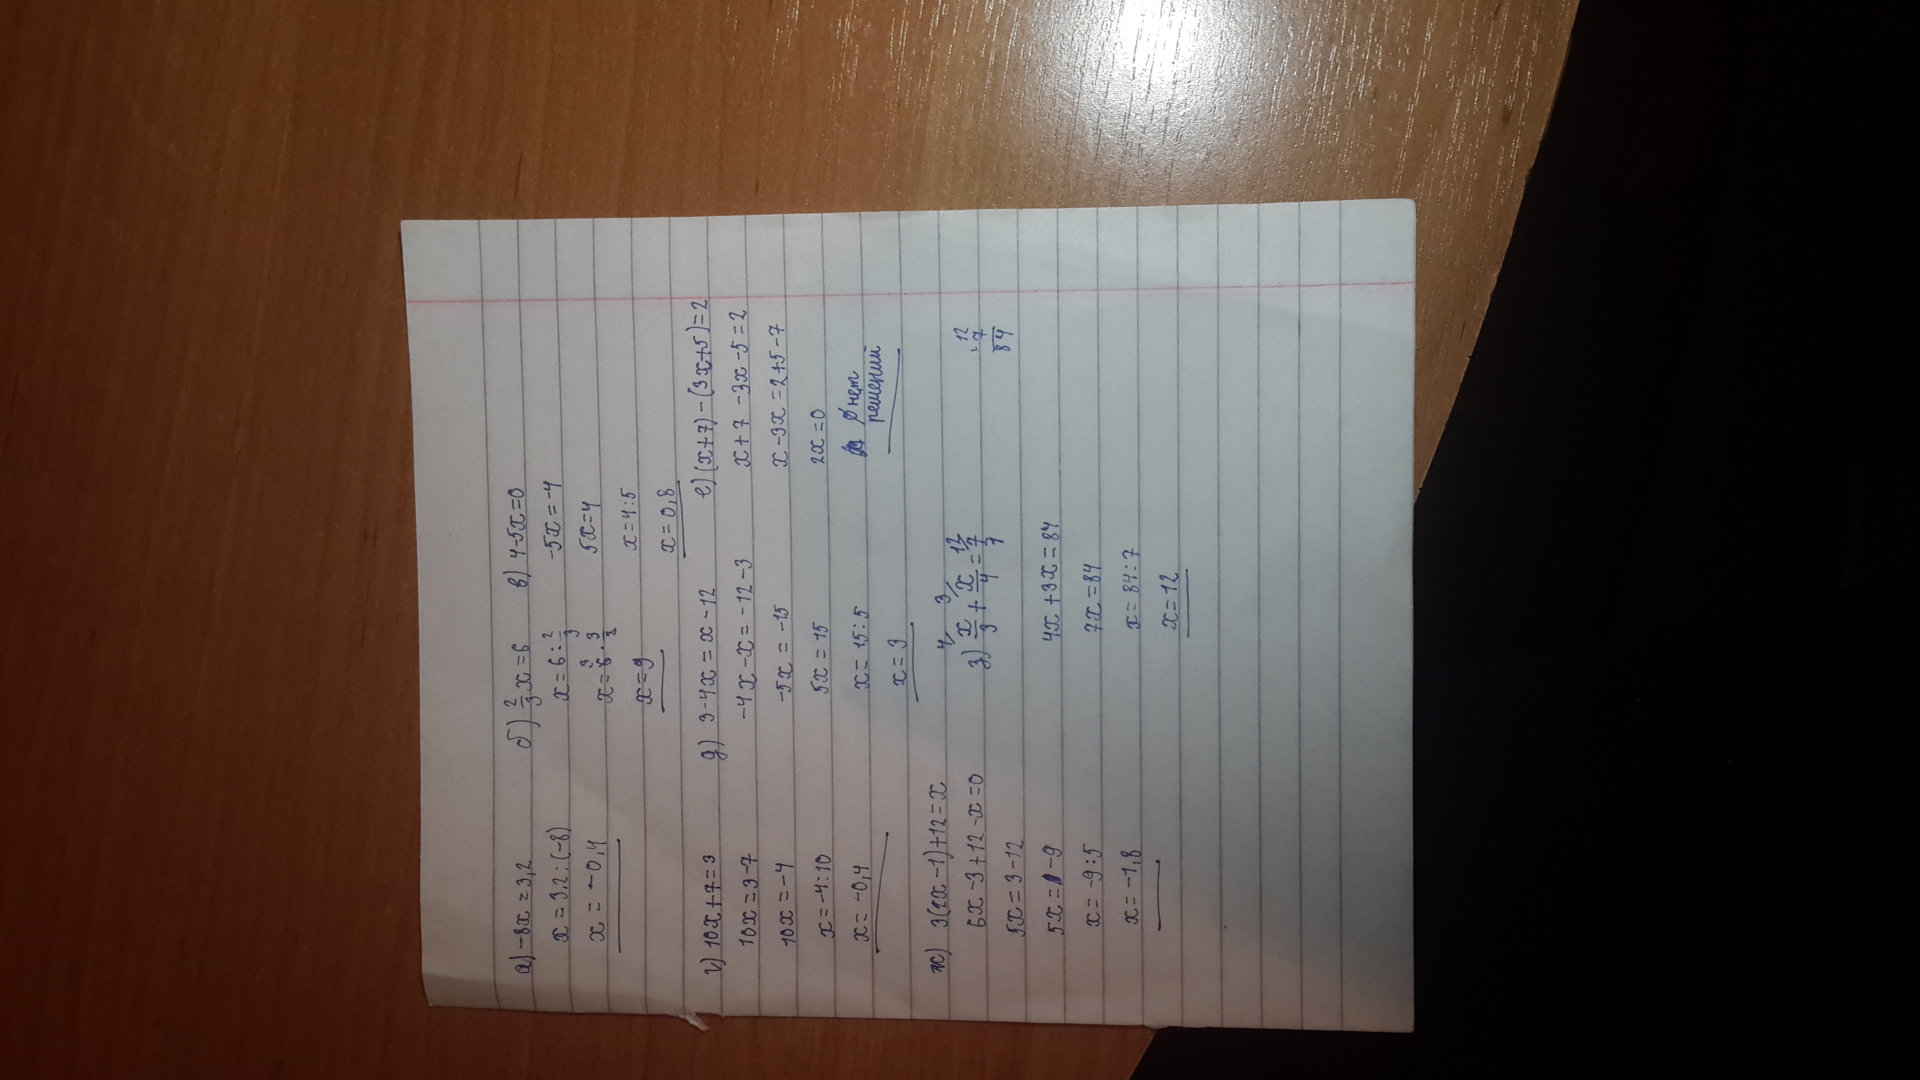 а) -8x = 3,2
x = 3,2 : (-8)
x = -0,4
б) 2/3 x = 6
x = 6 : 2/3
x = 6 · 3/2
3
x = 9
в) 4-5x=0
-5x = -4
5x=4
x = 4:5
x = 0,8
г) 10x+7=3
10x = 3-7
10x = -4
x = -4:10
x = -0,4
д) 3-4x = x-12
-4x-x = -12-3
-5x = -15
5x = 15
x = 15:5
x = 3
е) (x+7)-(3x+5)=2
x+7-3x-5=2
x-3x=2+5-7
2x=0
∅ нет
решений
ж) 3(2x-1)+12=x
6x-3+12-x=0
5x = 3-12
5x = -9
x = -9:5
x = -1,8
4 3
з) x/3 + x/4 = 12/7
7
4x+3x=84
7x=84
x = 84:7
x = 12
12
· 7
84